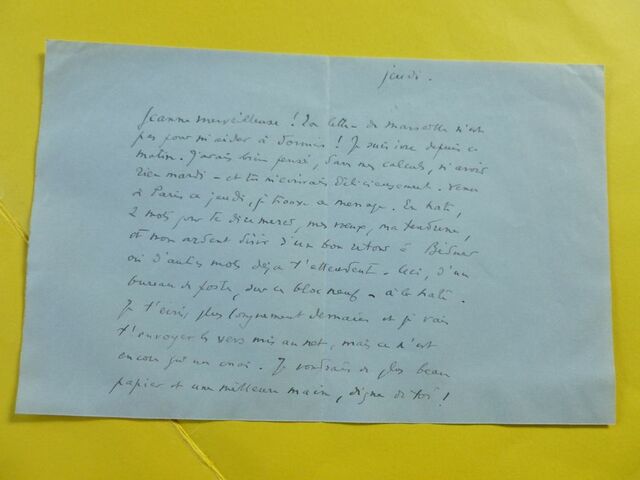 jeudi.
Jeanne merveilleuse ! Ta lettre de marseille n'est
pas pour m'aider à dormir ! Je suis ivre depuis ce
matin. J'avais bien pensé, dans mes calculs, n'avoir
rien mardi - et tu m'écrivais délicieusement. Venu
à Paris ce jeudi, je trouve ce message. En hâte,
2 mots pour te dire merci, mes vœux, ma tendresse,
et mon ardent désir d'un bon retour à
où d'autres mots déjà t'attendent. Ceci, d'un
bureau de poste, sur ce bloc neuf - à la hâte.
Je t'écris plus longuement demain et je vais
t'envoyer les vers mis au net, mais ce n'est
encore qu'un envoi. Je voudrais de plus beau
papier et une meilleure main, digne de toi !